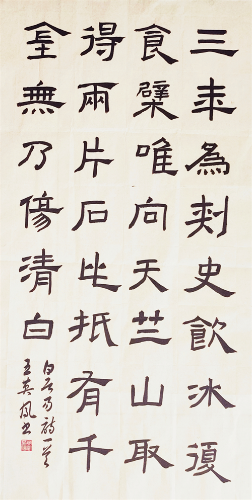 三年為刺史飲冰復
食檗唯向天竺山取
得兩片石此抵有千
金無乃傷清白
白居易詩一首
王英鳳书